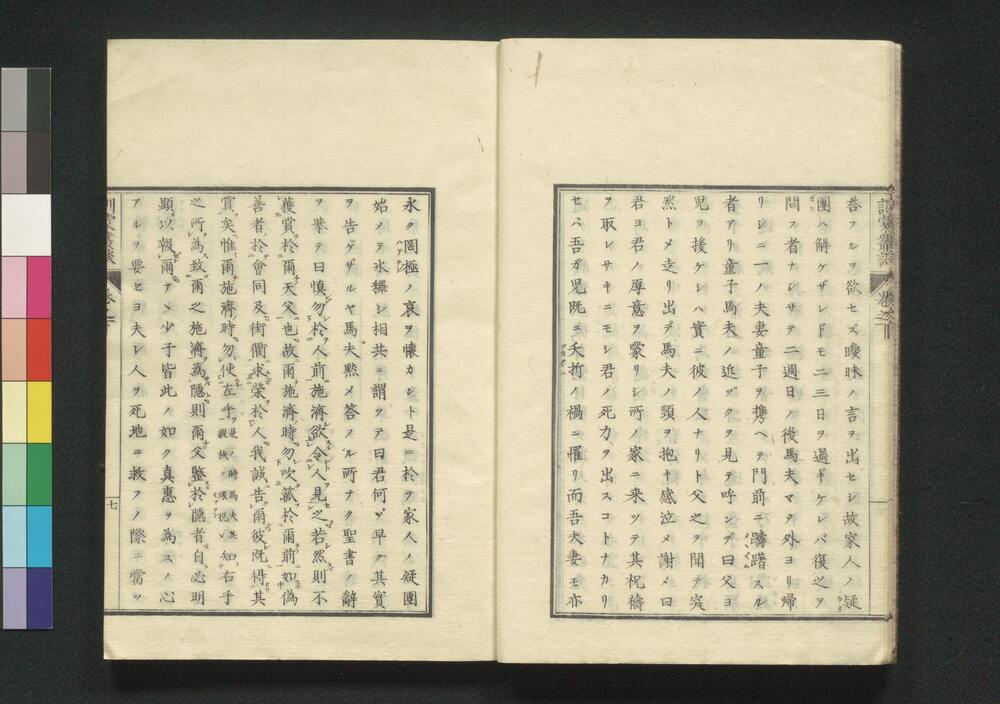 荅フルヲ欲セズ曖昧ノ言ヲ出セシ故家人ノ疑
團ハ解ケザレドモ二三日ヲ過ギケレバ復之ヲ
問フ者ナシサテ二週日ノ後馬夫マタ外ヨリ帰
リシニ一ノ夫妻童子ヲ携ヘテ門前ニ躊躇スル
者アリ童子馬夫ノ近ヅクヲ見テ呼ンデ曰父ヨ
児ヲ援ケシハ實ニ彼ノ人ナリト父之ヲ聞テ突
然トメ走リ出デ馬夫ノ頸ヲ抱キ感泣メ謝メ曰
君ヨ君ノ厚意ヲ蒙リシ所ノ家ニ来ツテ其祝禱
ヲ取レサキニモシ君ノ死力ヲ出スコトナカリ
セバ吾ガ児既ニ夭折ノ禍ニ罹リ而吾夫妻モ亦
永ク罔極ノ哀ヲ懐カント是ニ於テ家人ノ疑團
始ノテ氷釋シ相共ニ謂ツテ曰君何ゾ早ク其實
ヲ告ゲザルヤ馬夫黙メ答フル所ナク聖書ノ辞
ヲ擧テ曰慎勿於人前施濟欲令人見之若然則不
獲賞於爾天父也故爾施濟時勿吹箛於爾前如偽
善者於會同及街衢求榮於人我誠告爾彼既得其
賞矣惟爾施濟時勿使左手知右手
之所為致爾之施濟為隱則爾父鑒於隱者自必明
顯以報爾アヽ少子皆此ノ如ク真惠ヲ為スノ心
アルヲ要セヨ夫レ人ヲ死地ニ救フノ際ニ當ツ
七